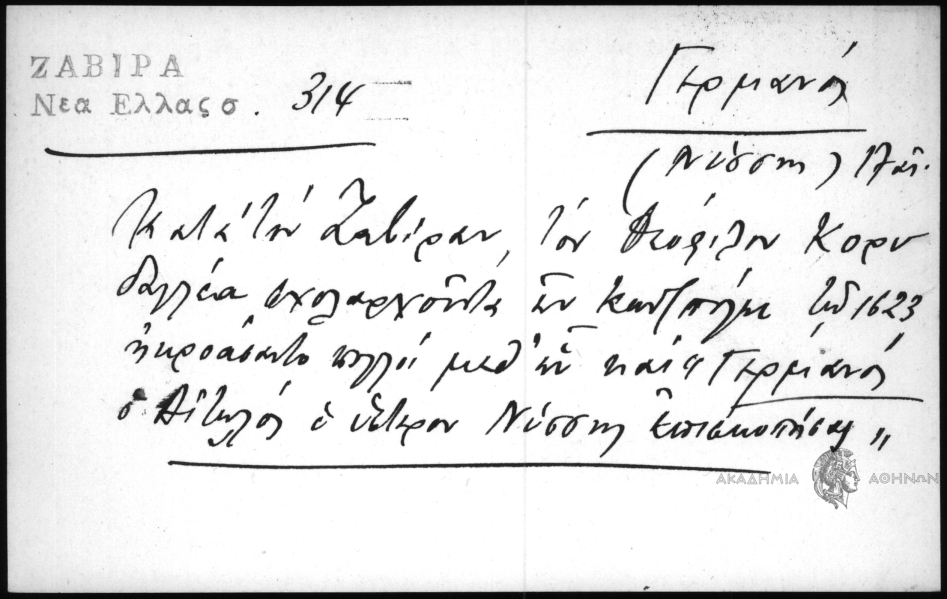 ΖΑΒΙΡΑ
Νεα Ελλας σ. 314
Γερμανός
(Νύσσης)
Κατά τήν Ζαβίραν, τόν Θεόφιλον Κορυ
δαλλέα σχολαρχοῦντα ἐν Κων/πόλει τῷ 1623
ἠκροάσαντο πολλοί μεθ' ὧν καί "Γερμανός
ὁ Αἰτωλός ὁ ὕστερον Νύσσης ἐπισκοπήσας"
ΑΚΑΔΗΜΙΑ ΑΘΗΝΩΝ